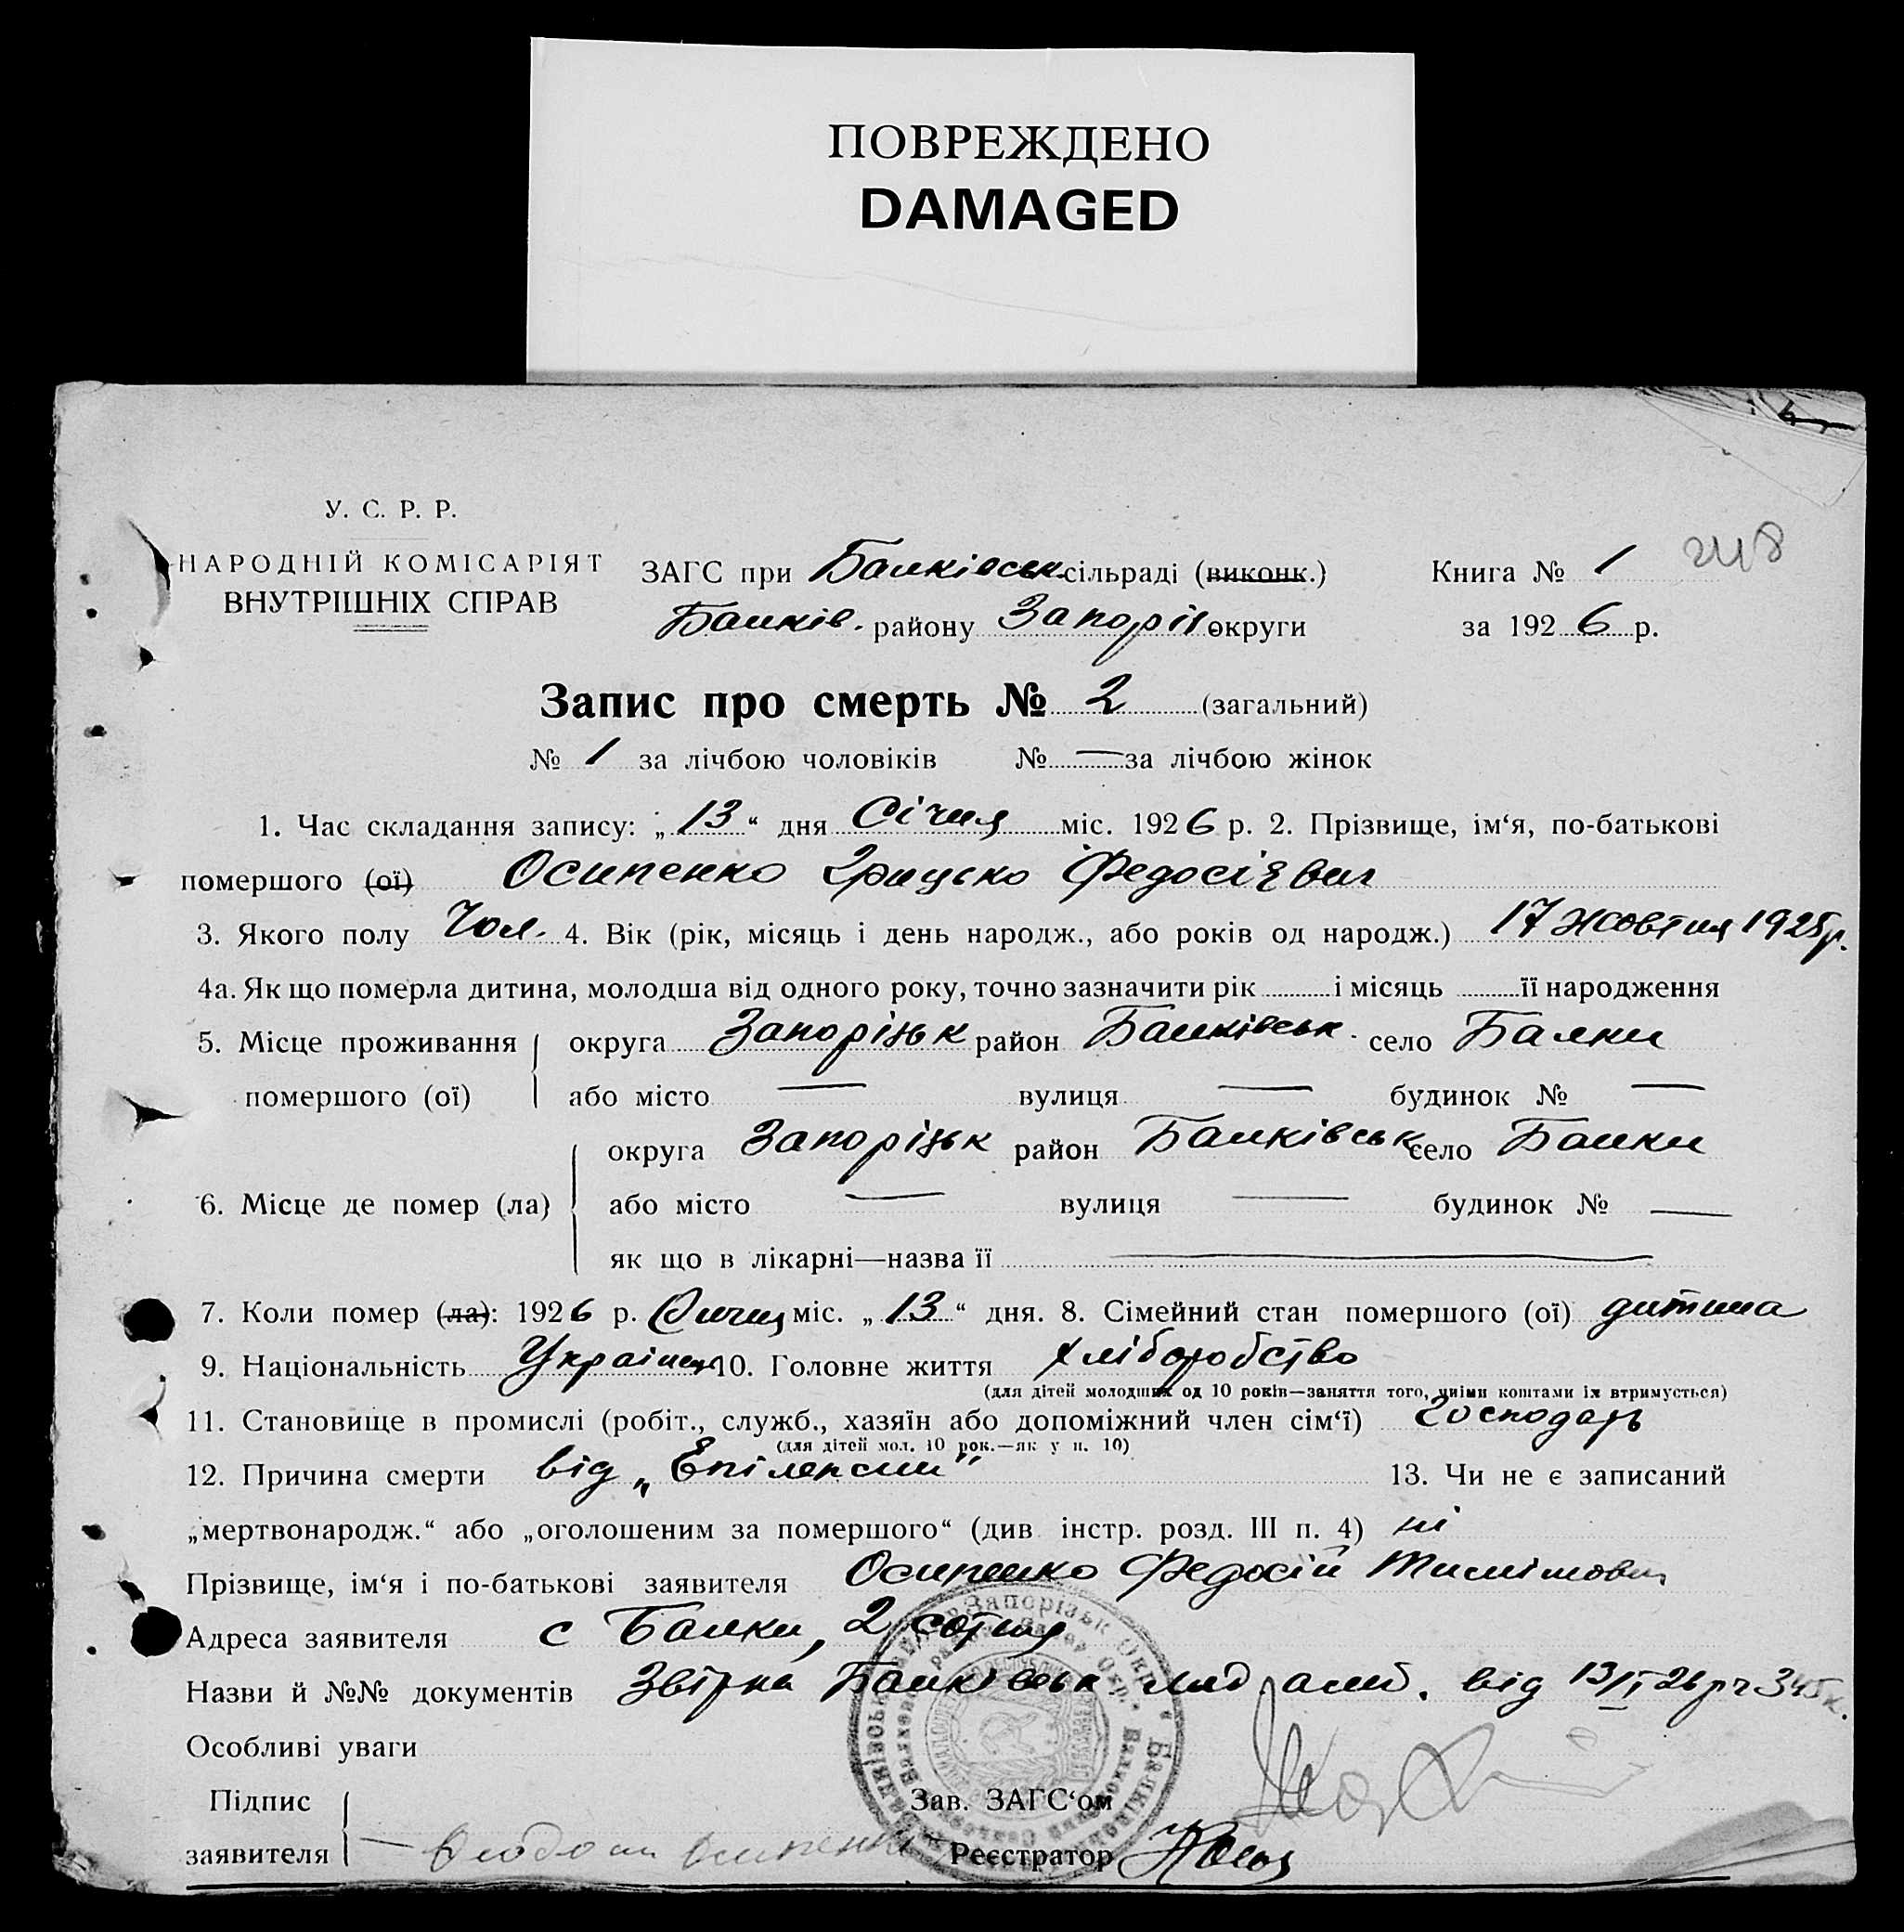 ПОВРЕЖДЕНО
DAMAGED
У. С. Р. Р.
НАРОДНІЙ КОМІСАРІЯТ
ВНУТРІШНІХ СПРАВ
ЗАГС при Балківськ. сільраді (виконк.) Книга № 1 248
Балків. району Запоріз. округи за 1926 р.
Запис про смерть № 2 (загальний)
№ 1 за лічбою чоловіків № — за лічбою жінок
1. Час складання запису: „13“ дня Січня міс. 1926 р. 2. Прізвище, ім‘я, по-батькові
помершого (ої) Осипенко Грицько Федосієвич
3. Якого полу Чол. 4. Вік (рік, місяць і день народж., або років од народж.) 17 жовтня 1925 р.
4а. Як що померла дитина, молодша від одного року, точно зазначити рік і місяць її народження
5. Місце проживання округа Запорізьк район Балківськ. село Балки
помершого (ої) або місто — вулиця — будинок № —
округа Запорізьк район Балківськ село Балки
6. Місце де помер (ла) або місто — вулиця — будинок № —
як що в лікарні—назва її —
7. Коли помер (ла): 1926 р. Січня міс. „13“ дня. 8. Сімейний стан помершого (ої) дитина
9. Національність Українець 10. Головне життя хліборобство
(для дітей молодших од 10 років—заняття того, чиїми коштами їх втримується)
11. Становище в промислі (робіт., служб., хазяїн або допоміжний член сім‘ї) Господарь
(для дітей мол. 10 рок.—як у п. 10)
12. Причина смерти від „Епілепсии“ 13. Чи не є записаний
„мертвонародж.“ або „оголошеним за помершого“ (див інстр. розд. III п. 4) ні
Прізвище, ім‘я і по-батькові заявителя Осипенко Федосій
Адреса заявителя с Балки, 2 сотня
Назви й №№ документів Балківськ від 13/I 26 р
Особливі уваги
Підпис Зав. ЗАГС‘ом
заявителя Осипенко Реєстратор